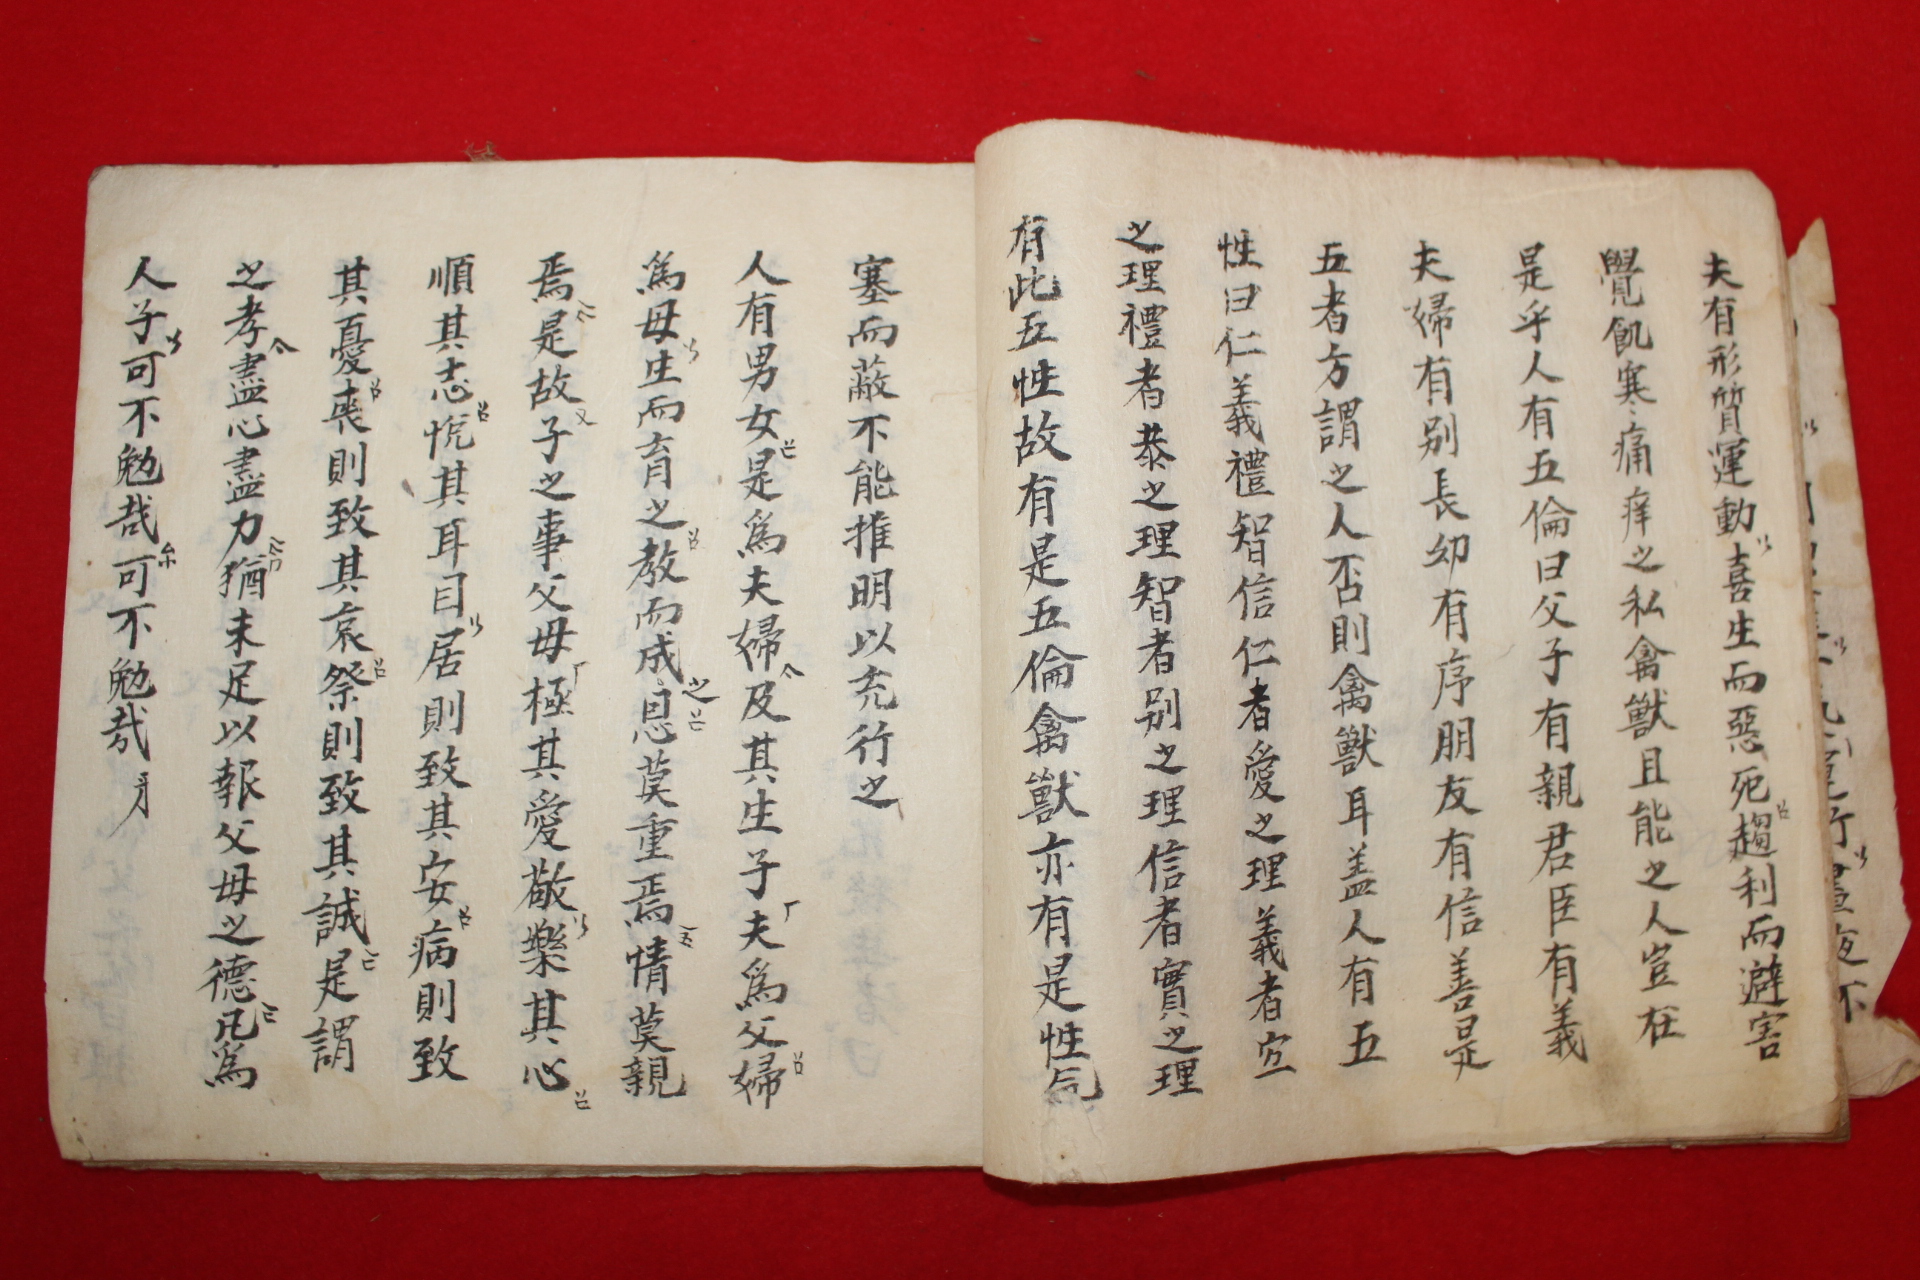 夫有形質運動喜生而惡死趨利而避害
覺飢寒痛痒之私禽獸且能之人豈在
是乎人有五倫曰父子有親君臣有義
夫婦有别長幼有序朋友有信善是
五者方謂之人否則禽獸耳盖人有五
性曰仁義禮智信仁者愛之理義者宜
之理禮者恭之理智者别之理信者實之理
有此五性故有是五倫禽獸亦有是性氣
塞而蔽不能推明以充行之
人有男女是爲夫婦及其生子夫爲父婦
爲母生而育之教而成之恩莫重焉情莫親
焉是故子之事父母極其愛敬樂其心
順其志悅其耳目居則致其安病則致
其憂喪則致其哀祭則致其誠是謂
之孝盡心盡力猶未足以報父母之德凡爲
人子可不勉哉可不勉哉